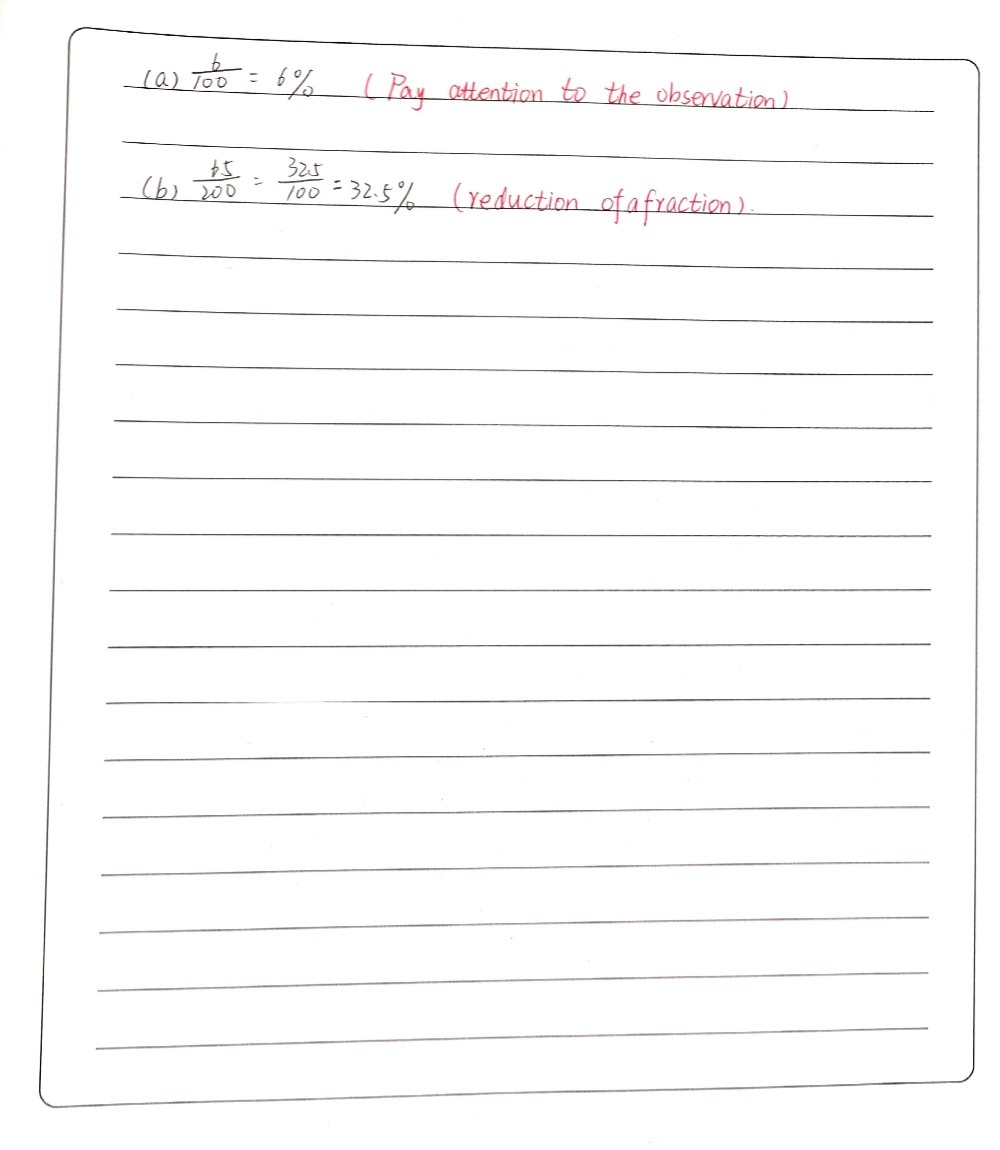 (a) 6/100 = 6% (Pay attention to the observation)
(b) 65/200 = 325/100 = 32.5% (reduction of a fraction).